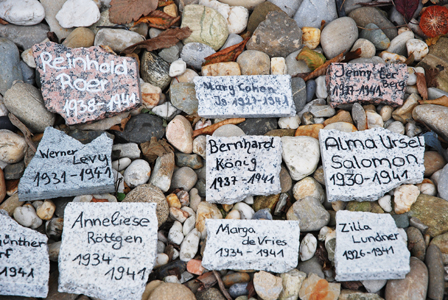 Reinhardt
Roer
1938-1941
Mary Cohen
1927-1941
Jenny
Berg
1941
Werner
Levy
1931-1941
Bernhard
König
1937-1941
Alma Ursel
Salomon
1930-1941
günther
1941
Anneliese
Röttgen
1934-
1941
Marga de Vries
1934-1941
Zilla
Lundner
1926-1941